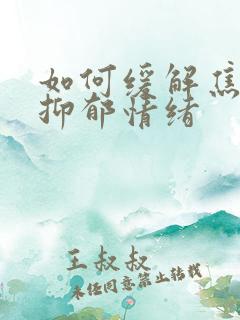 如何缓解焦
抑郁情绪
王叔叔
未经同意禁止转载